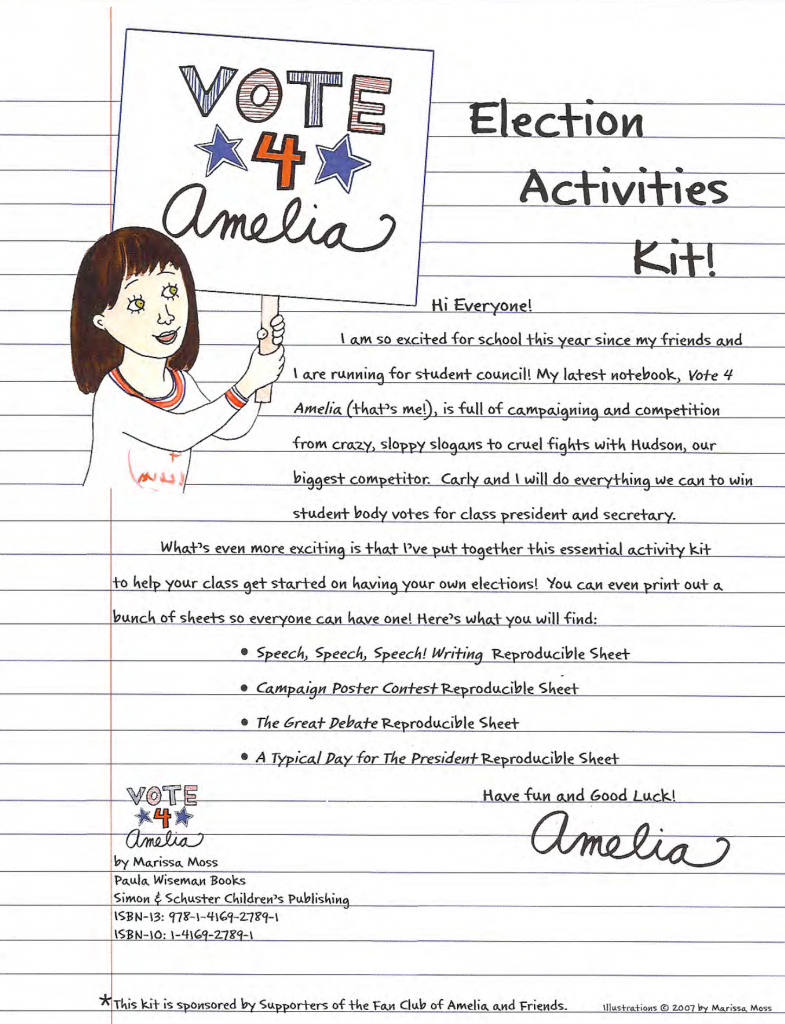 VOTE
4
Amelia
Election
Activities
Kit!
Hi Everyone!
I am so excited for school this year since my friends and
I are running for student council! My latest notebook, Vote 4
Amelia (that's me!), is full of campaigning and competition
from crazy, sloppy slogans to cruel fights with Hudson, our
biggest competitor. Carly and I will do everything we can to win
student body votes for class president and secretary.
What's even more exciting is that I've put together this essential activity kit
to help your class get started on having your own elections! You can even print out a
bunch of sheets so everyone can have one! Here's what you will find:
• Speech, Speech, Speech! Writing Reproducible Sheet
• Campaign Poster Contest Reproducible Sheet
• The Great Debate Reproducible Sheet
• A Typical Day for The President Reproducible Sheet
Have fun and Good Luck!
Amelia
VOTE
4
Amelia
by Marissa Moss
Paula Wiseman Books
Simon & Schuster Children's Publishing
ISBN-13: 978-1-4169-2789-1
ISBN-10: 1-4169-2789-1
*This kit is sponsored by Supporters of the Fan Club of Amelia and Friends.
Illustrations © 2007 by Marissa Moss